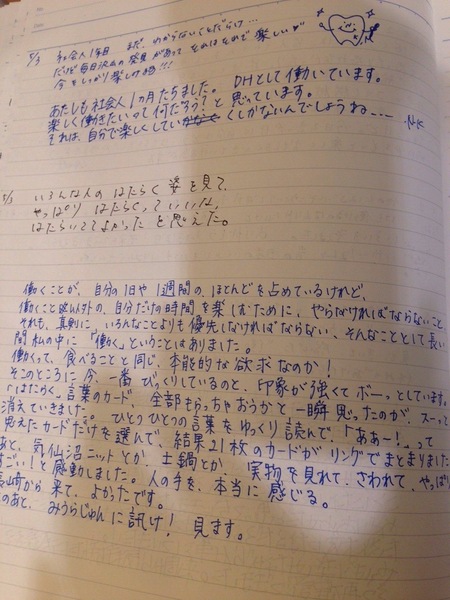 5/3 社会人1年目 まだ、わからないことだらけ…
だけど毎日沢山の発見があって それはそれで楽しい♡
今をしっかり楽しむ時!!!
あたしも社会人1ヵ月たちました。 DHとして働いています。
楽しく働きたいって何だろう?と思っています。
それは、自分で楽しくしていくしかないんでしょうね…
いろんな人の はたらく 姿を見て、
やっぱり はたらくっていいな、
はたらいててよかった と思えた。
働くことが、自分の1日や1週間の ほとんどを占めているけれど、
働くこと以外の、自分だけの時間を楽しむために、やらなければならないこと、
それも、真剣に、いろんなことよりも優先しなければならない、そんなこととして長い
間私の中に「働く」ということはありました。
働くって、食べることと同じ、本能的な欲求なのか!
そのところに今、一番びっくりしているのと、印象が強くてボーッとしています。
「はたらく」言葉のカード 全部もらっちゃおうかと一瞬思ったのが、スーッて
消えていきました。 ひとつひとつの言葉をゆっくり読んで、「あぁー!」って
思えたカードだけを選んで、結果21枚のカードがリングでまとまりました
あと、気仙沼ニットとか、土鍋とか、実物を見れて、さわれて、やっぱり
すごい!と感動しました。人の手を、本当に感じる。
長崎から来て、よかったです。
このあと、みうらじゅんに訊け! 見ます。